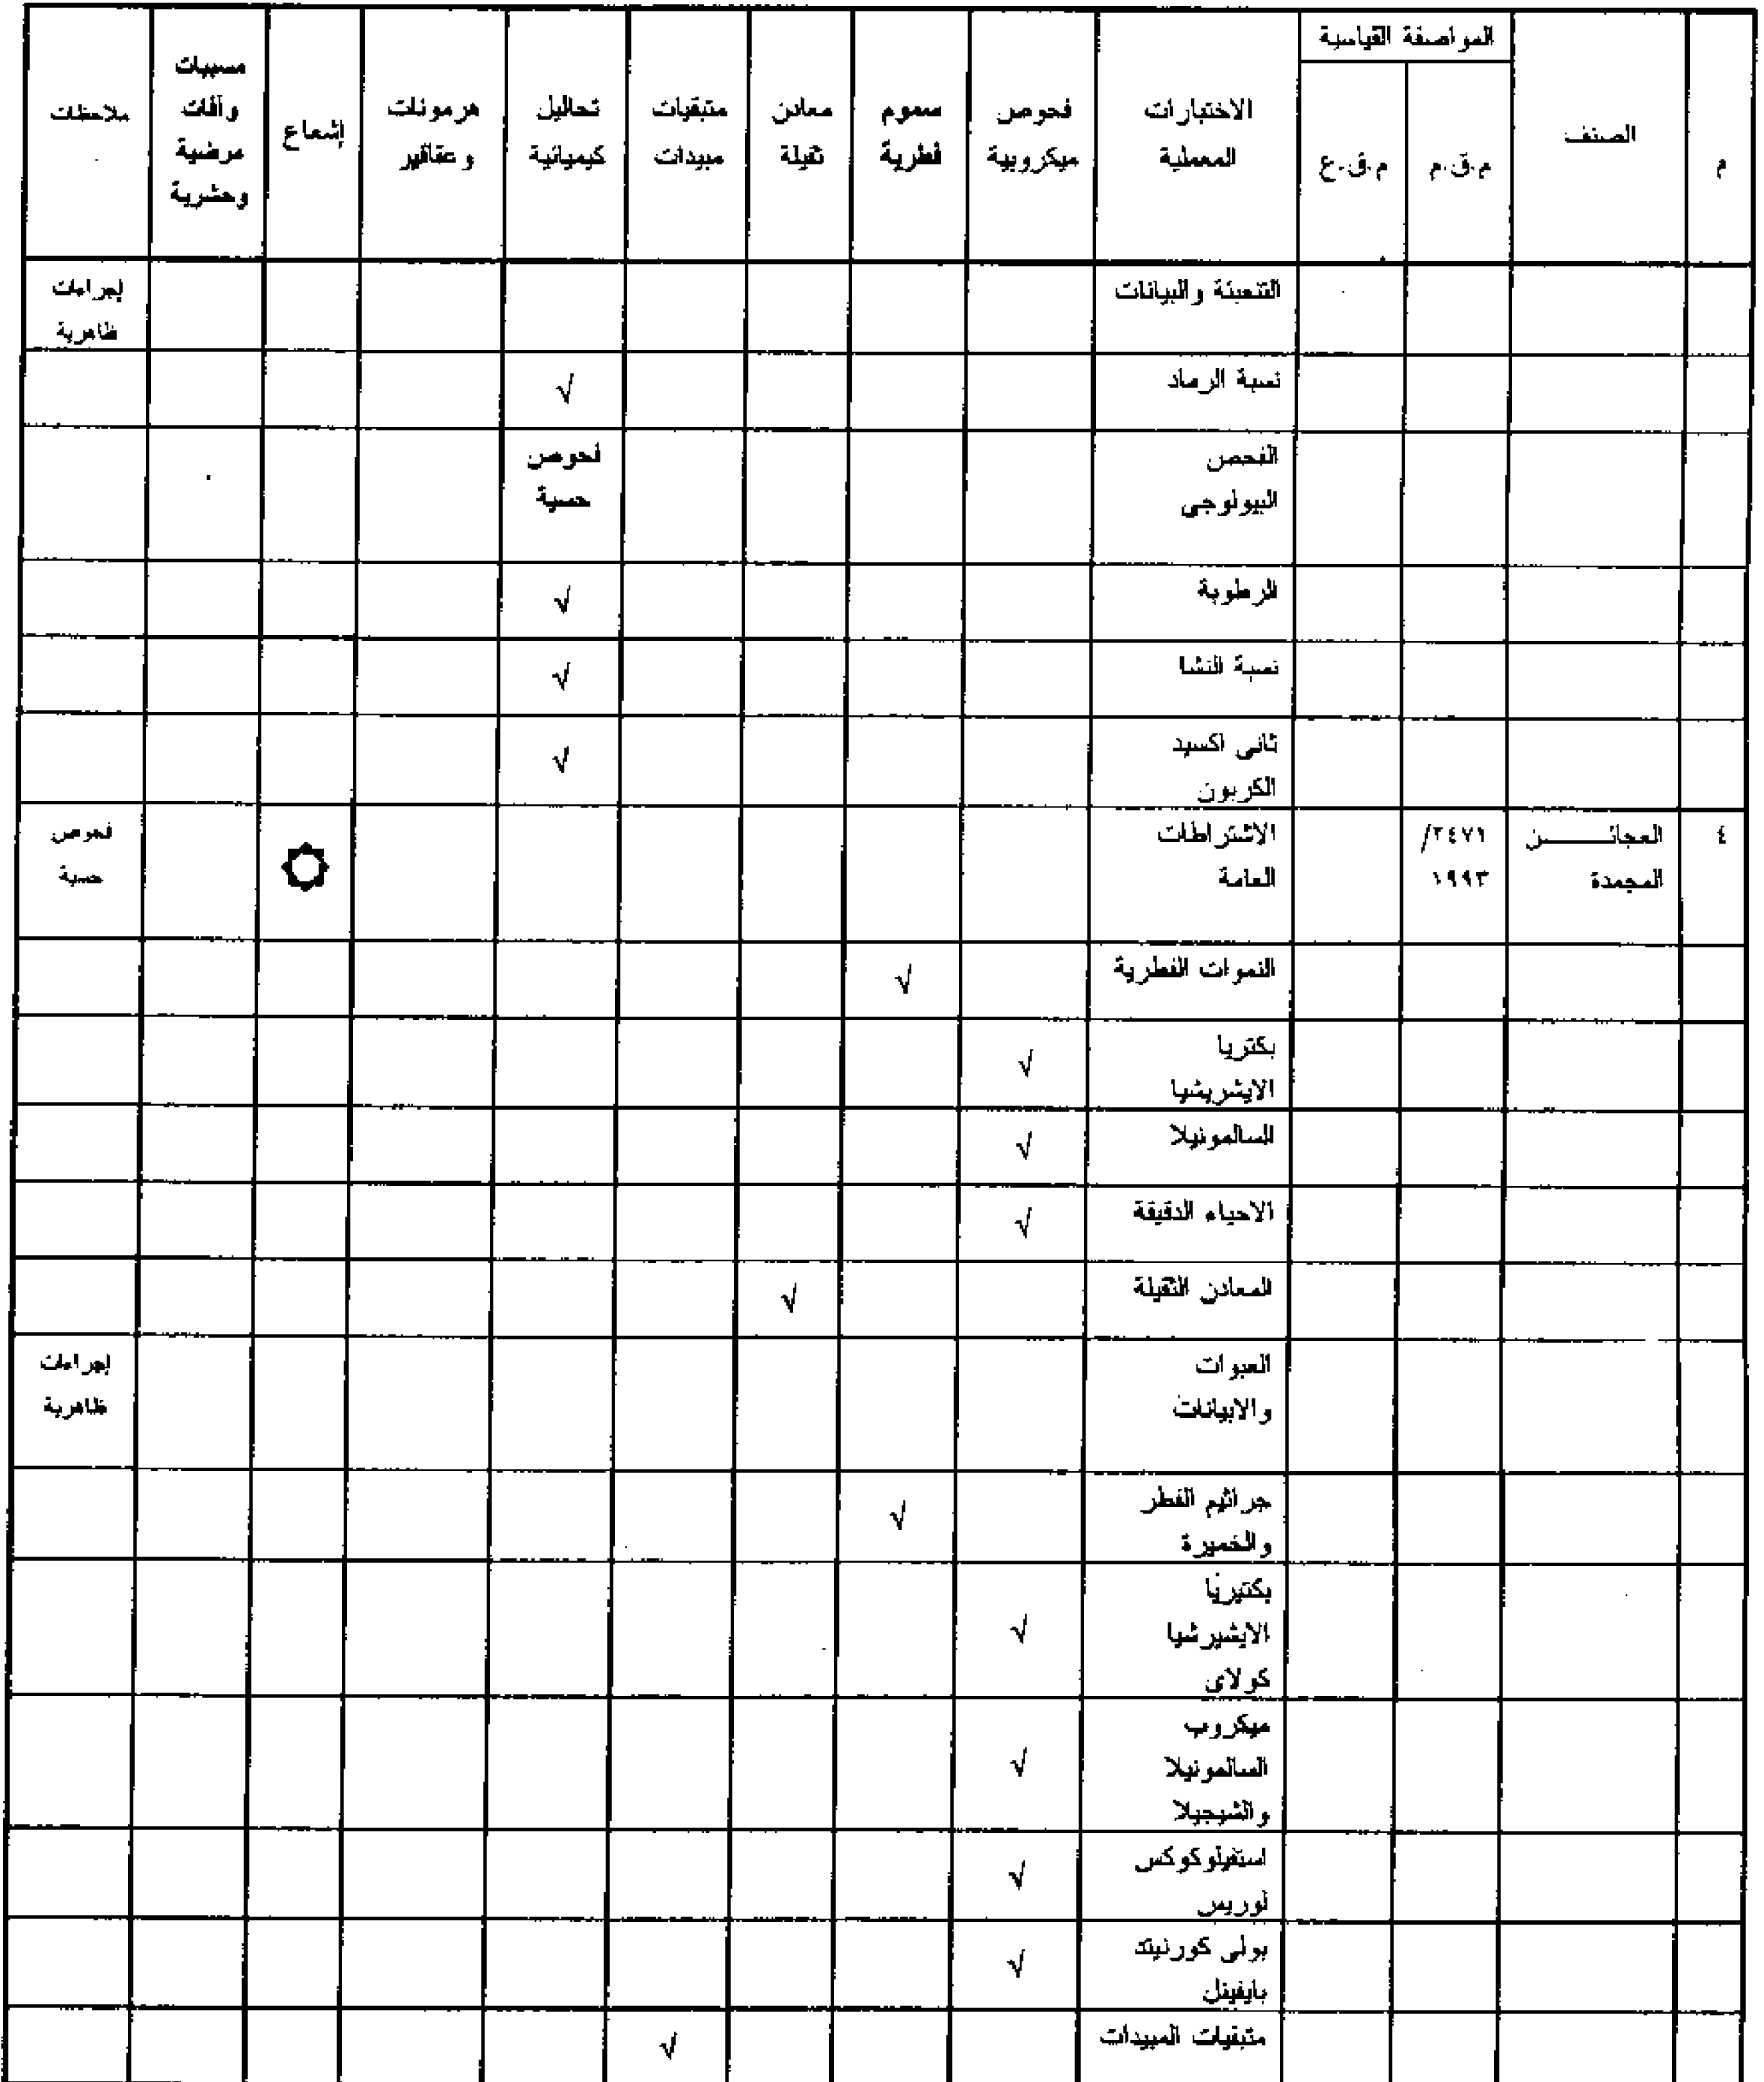 م
الصنف
المواصفة القياسية
م.ق.م
م.ق.ع
الاختبارات
المعملية
فحوص
ميكروبية
سموم
فطرية
معادن
ثقيلة
متبقيات
مبيدات
تحاليل
كيميائية
هرمونات
وعقاقير
إشعاع
مسببات
وآفات
مرضية
وحشرية
ملاحظات
التعبئة والبيانات
إجراءات
ظاهرية
نسبة الرماد
√
الفحص
البيولوجى
فحوص
حسية
الرطوبة
√
نسبة النشا
√
ثانى اكسيد
الكربون
√
٤
العجائن
المجمدة
٢٤٧١/
١٩٩٣
الاشتراطات
العامة
فحوص
حسية
النموات الفطرية
√
بكتريا
الايشريشيا
√
السالمونيلا
√
الاحياء الدقيقة
√
المعادن الثقيلة
√
العبوات
والابيانات
إجراءات
ظاهرية
جراثيم الفطر
والخميرة
√
بكتيريا
الايشيرشيا
كولاى
√
ميكروب
السالمونيلا
والشيجيلا
√
استفيلوكوكس
اوريس
√
بولى كورنيتد
بايفينل
√
متبقيات المبيدات
√